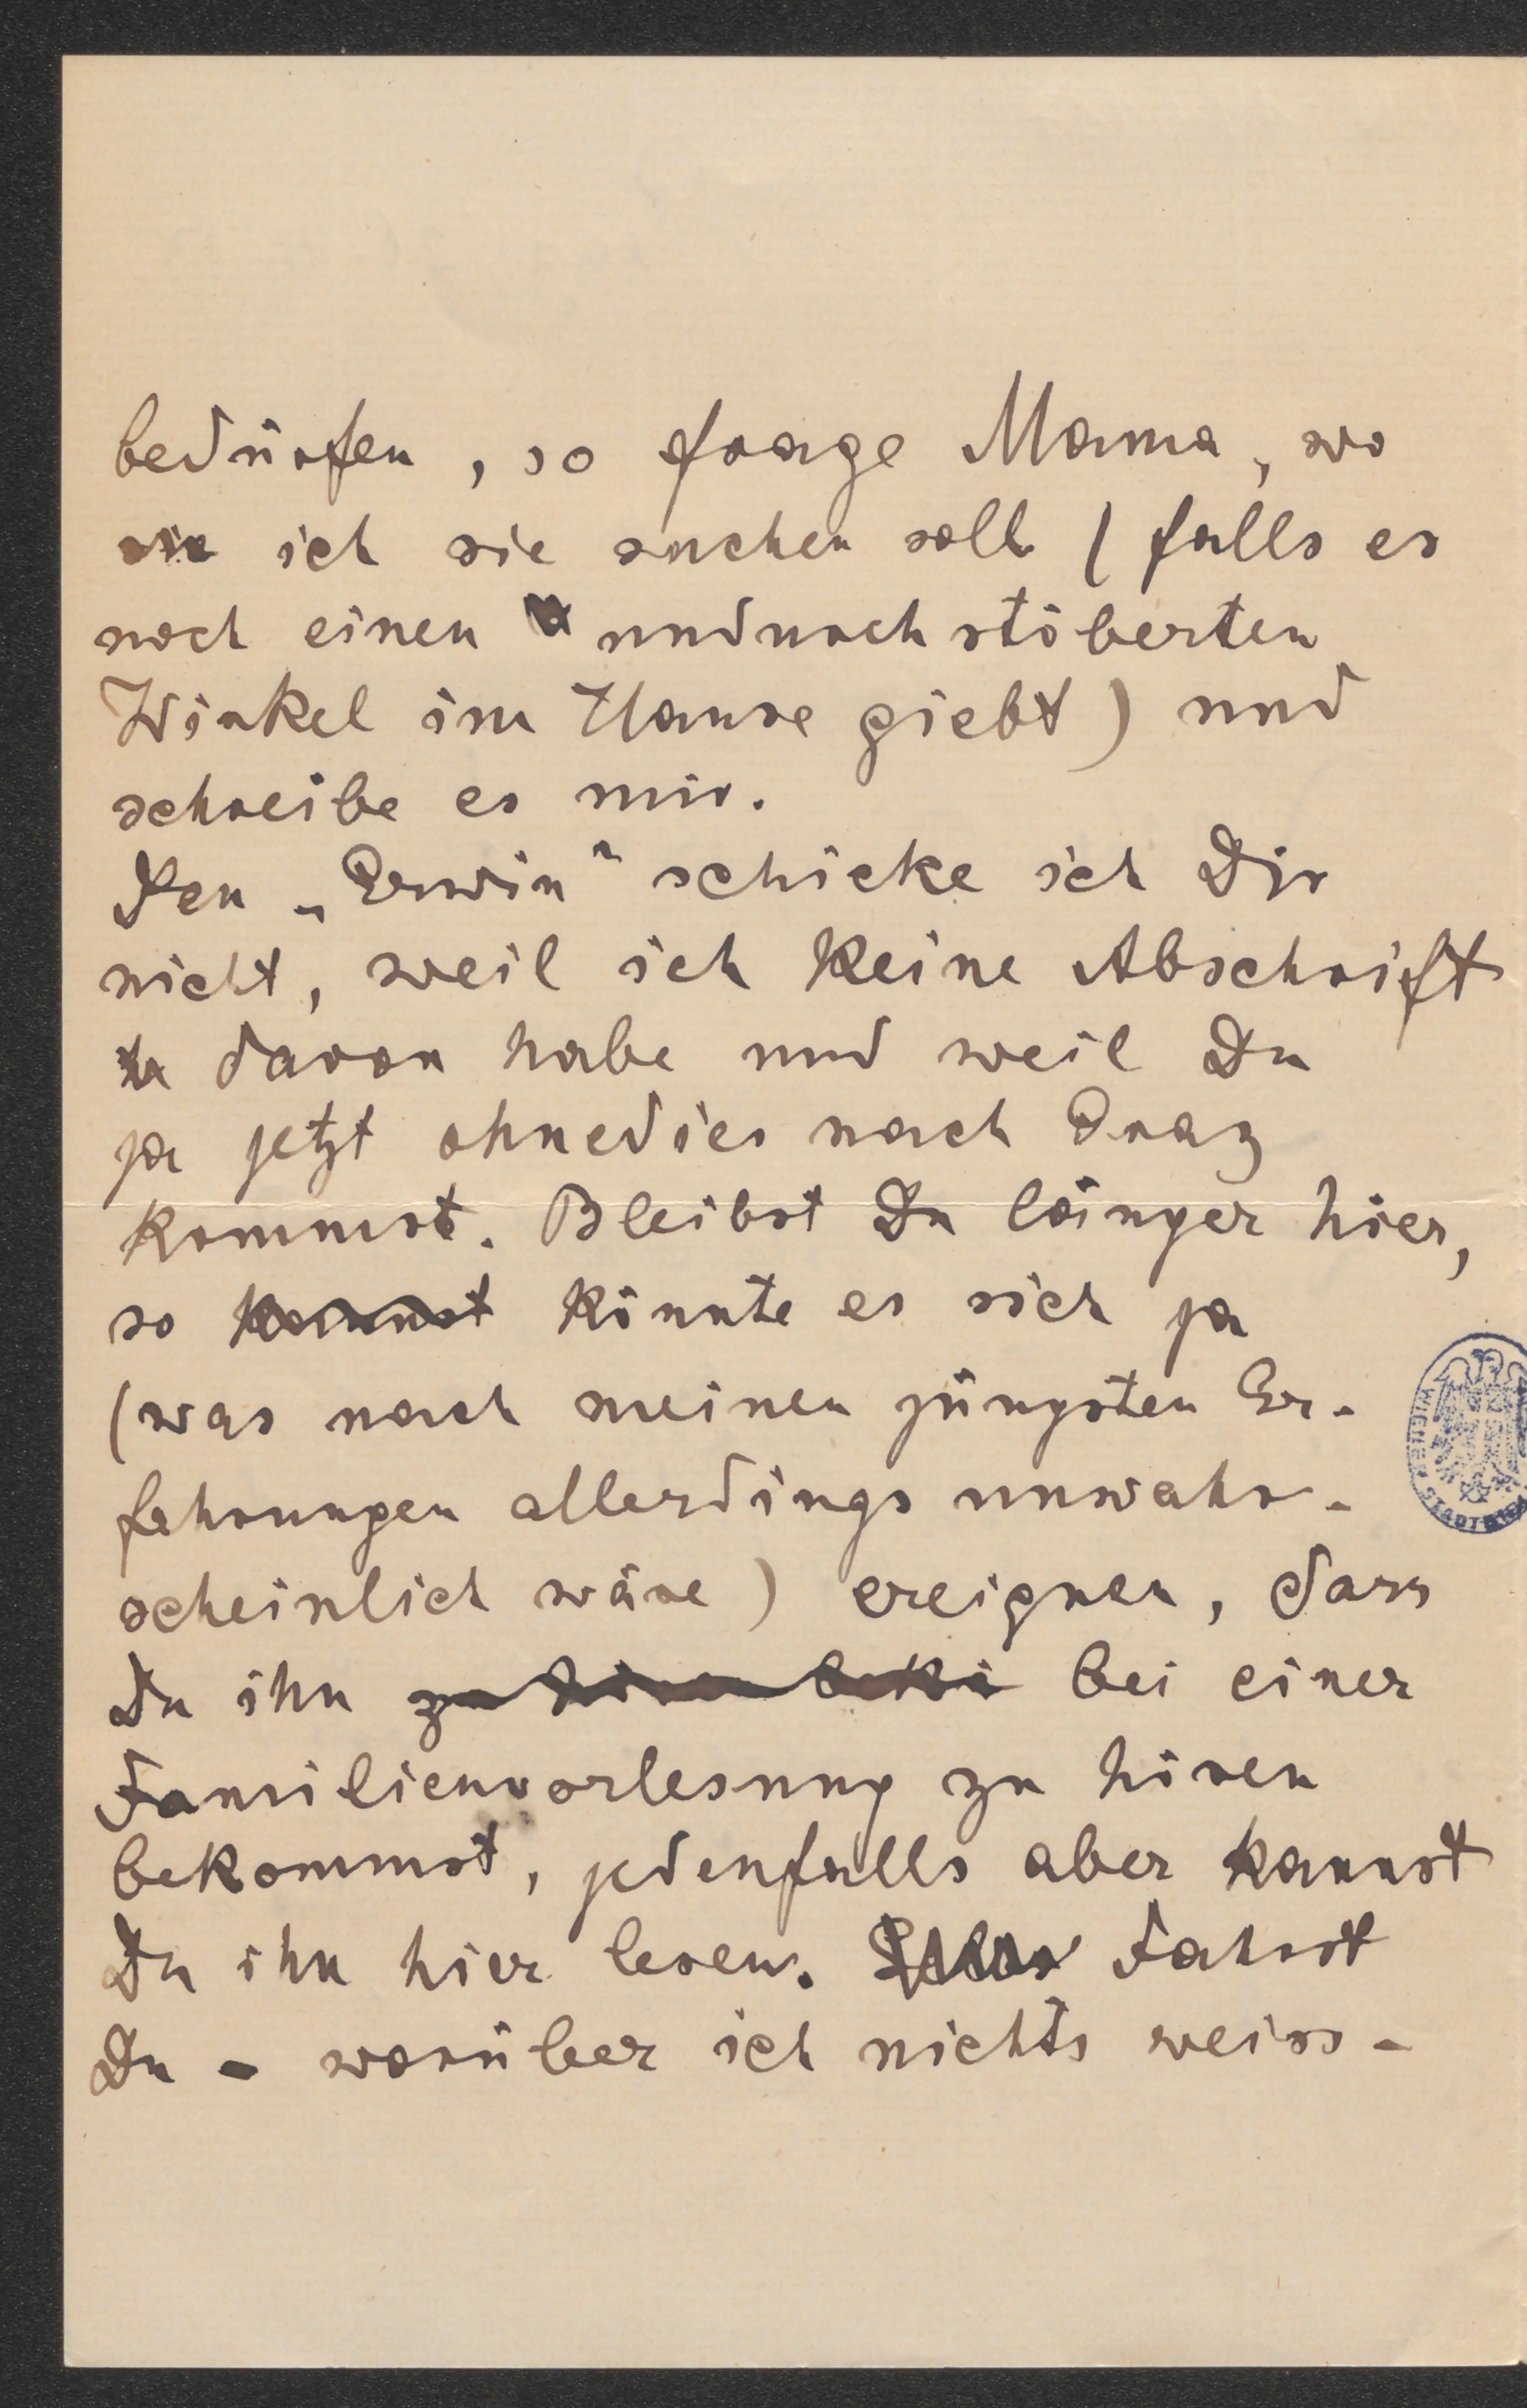 bedürfen, so frage Mama, wo
ich sie suchen soll (falls es
noch einen undurchstöberten
Winkel im Hause giebt) und
schreibe es mir.
Den „Erwin“ schicke ich Dir
nicht, weil ich keine Abschrift
davon habe und weil Du
ja jetzt ohnedies nach Graz
kommst. Bleibst Du länger hier,
so kommst könnte es sich ja
(was nach meinen jüngsten Er-
fahrungen allerdings unwahr-
scheinlich wäre) ereignen, dass
Du ihn bei einer
Familienvorlesung zu hören
bekommst, jedenfalls aber kannst
Du ihn hier lesen. Fahrst
Du - worüber ich nichts weiss -